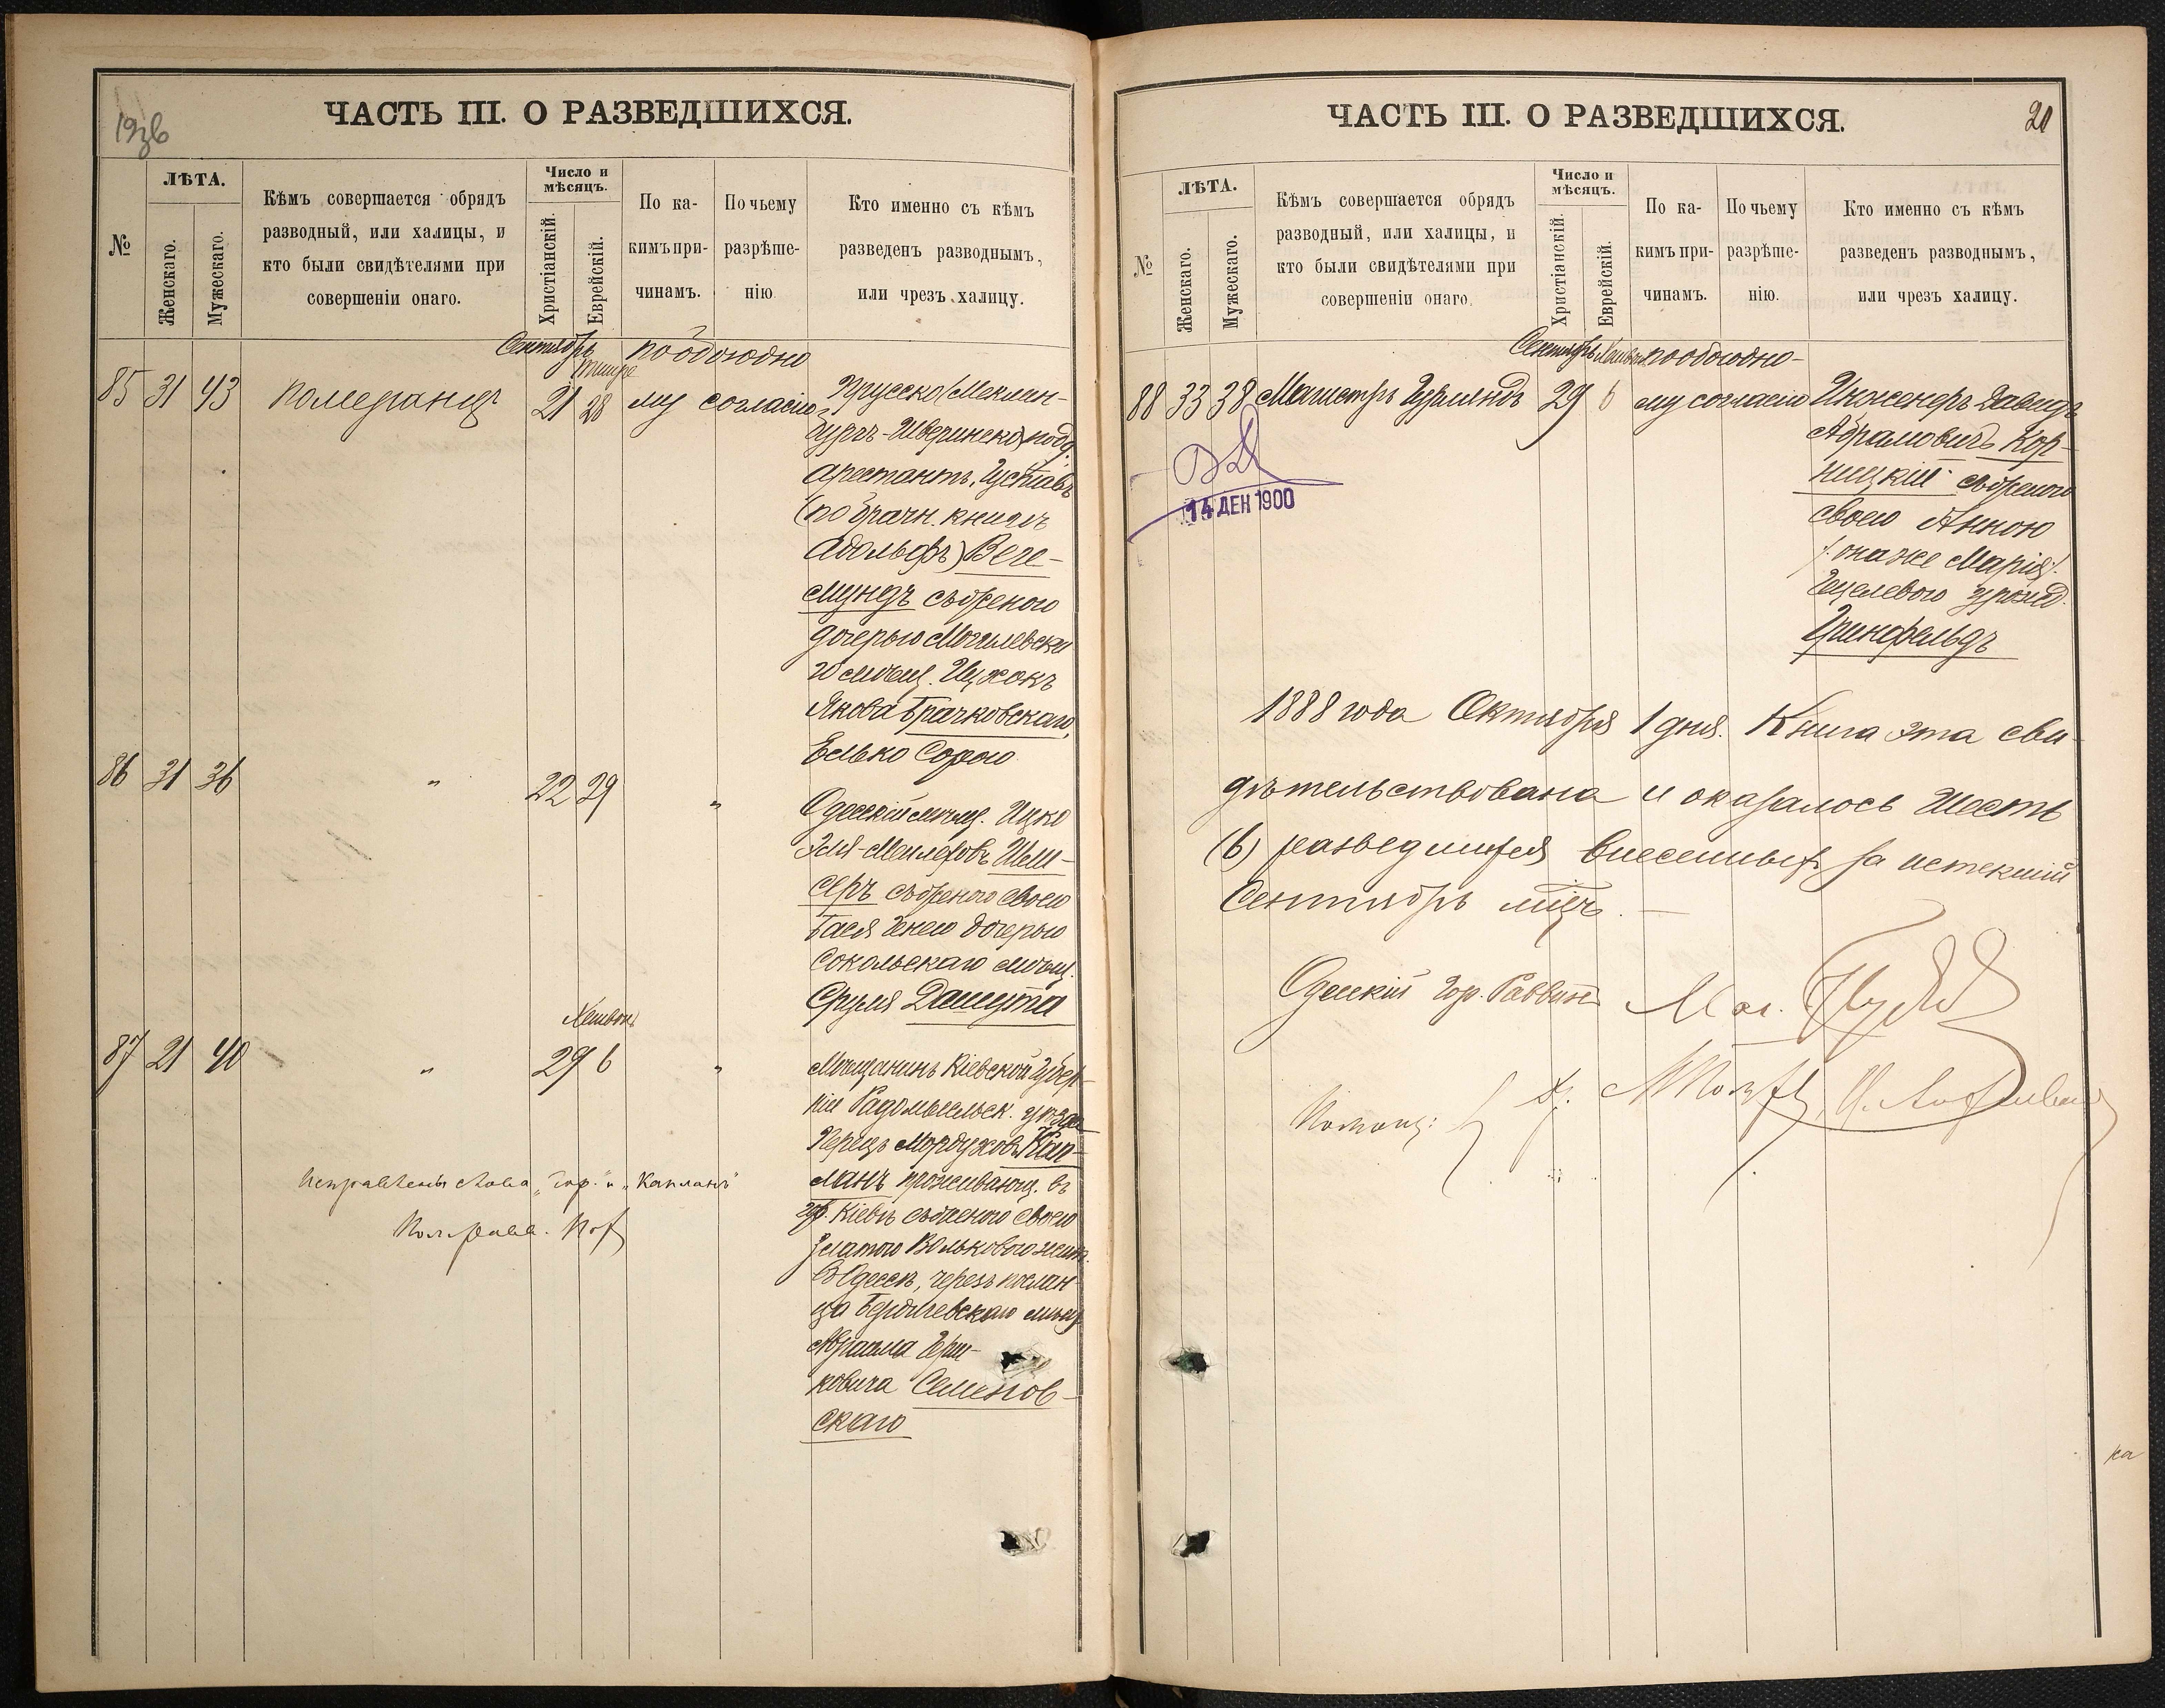 ЧАСТЬ III. О РАЗВЕДШИХСЯ.
№
ЛѢТА.
Женскаго.
Мужескаго.
Кѣмъ совершается обрядъ
разводный, или халицы, и
кто были свидѣтелями при
совершеніи онаго.
Число и
мѣсяцъ.
Христіанскій.
Еврейскій.
По ка-
кимъ при-
чинамъ.
По чьему
разрѣше-
нію
Кто именно съ кѣмъ
разведенъ разводнымъ,
или чрезъ халицу.
Сентябрь Тишре по обоюдно
85 31 43 Померанцъ 21 28 му согласію Прусско (Меклен-
бургъ-Шверинско) подд.
арестантъ, Густавъ
(по брачн. книгѣ
Адольфъ) Веге-
мундъ съ женою
дочерью Могилевска
го мѣщ. Ицхокъ
Якова Брачковскаго,
Белько Сорою
86 31 36 " 22 29 "
Одесскій мѣщ. Ицко
Эля-Меилеховъ Шли-
серъ съ женою своею
Бася Генею дочерью
Сокольскаго мѣщ.
Сруля Дашута
Хешвонъ
87 21 40 " 29 6 "
Мѣщанинъ Кіевской губер-
ніи Радомысльск. уѣзда
Перецъ Мордуховъ Кап-
ланъ проживающ. въ
гор. Кіевѣ съ женою своею
Златою Вольковою жит.
въ Одессѣ, черезъ послан-
ца Бердичевскаго мѣщ.
Абрама Герш-
ковича Семенов-
скаго
Исправлены слова "гор." и "Капланъ"
Пом. равв.
ЧАСТЬ III. О РАЗВЕДШИХСЯ.
20
№
ЛѢТА.
Женскаго.
Мужескаго.
Кѣмъ совершается обрядъ
разводный, или халицы, и
кто были свидѣтелями при
совершеніи онаго.
Число и
мѣсяцъ.
Христіанскій.
Еврейскій.
По ка-
кимъ при-
чинамъ.
По чьему
разрѣше-
нію.
Кто именно съ кѣмъ
разведенъ разводнымъ,
или чрезъ халицу.
Сентябрь Хешвонъ по обоюдно-
88 33 38 Магистръ Гурляндъ 29 6 му согласію Инженеръ Давидъ
Абрамовичъ Кор-
ницкій съ женою
своею Анною
/: она же Марія :/
Гецелевою урожд.
Гринфельдъ
14 ДЕК 1900
1888 года Октября 1 дня. Книга эта сви-
дѣтельствована и оказалось шесть
(6) разведшихся внесенныхъ за истекшій
Сентябрь мѣцъ.
Одесскій Гор. Раввинъ Маг.
Помощ:
ка